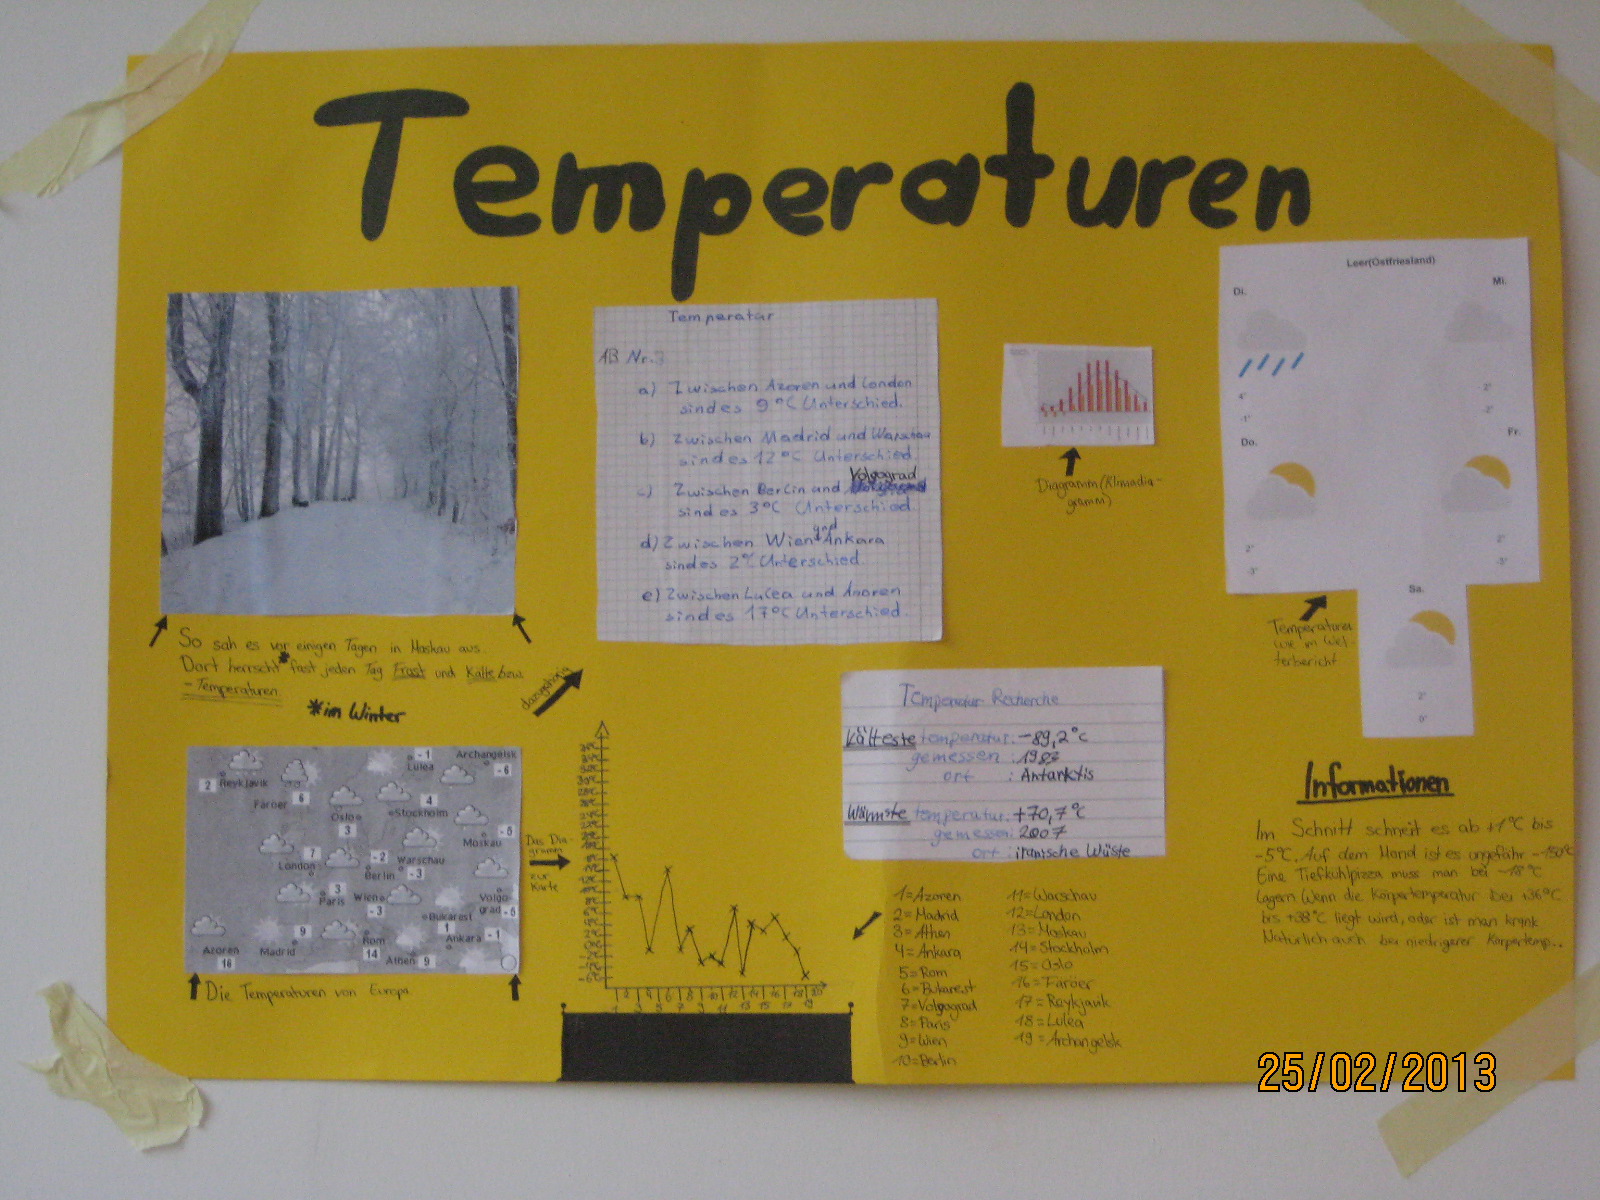 Temperaturen
So sah es vor einigen Tagen in Moskau aus.
Dort herrscht* fast jeden Tag Frost und Kälte bzw.
-Temperaturen
*im Winter
2 Reykjavik
Faröer 6
Oslo
3
-1
Lulea
Archangelsk
-6
4
Stockholm
-5
Moskau
7
London
-2
Berlin
Warschau
-3
3
Paris
Wien
-3
Volgo-
grad -5
Bukarest
1
Ankara -1
Azoren
16
Madrid
9
Rom
14
Athen 9
Die Temperaturen von Europa.
Das Dia-
gramm
zur
Karte
dazugehörig
Temperatur
AB Nr.3
a) Zwischen Azoren und London
sind es 9°C Unterschied.
b) Zwischen Madrid und Warschau
sind es 12°C Unterschied.
c) Zwischen Berlin und Volgograd
sind es 3°C Unterschied.
d) Zwischen Wien und Ankara
sind es 2°C Unterschied.
e) Zwischen Lulea und Azoren
sind es 17°C Unterschied.
Diagramm (Klimadia-
gramm)
Leer(Ostfriesland)
Di.
Mi.
4°
-1°
-2°
-2°
Do.
Fr.
2°
-3°
2°
-3°
Sa.
2°
0°
Temperaturen
wie im Wet-
terbericht
Temperatur Recherche
Kälteste temperatur: -89,2°c
gemessen : 1983
ort : Antarktis
Wärmste temperatur: +70,7°c
gemessen: 2007
ort : iranische Wüste
1=Azoren
2=Madrid
3=Athen
4=Ankara
5=Rom
6=Bukarest
7=Volgograd
8=Paris
9=Wien
10=Berlin
11=Warschau
12=London
13=Moskau
14=Stockholm
15=Oslo
16=Faröer
17=Reykjavik
18=Lulea
19=Archangelsk
Informationen
Im Schnitt schneit es ab +1°C bis
-5°C. Auf dem Mond ist es ungefähr -150°C
Eine Tiefkühlpizza muss man bei -18°C
lagern Wenn die Körpertemperatur bei +36°C
bis +38°C liegt wird, oder ist man krank
Natürlich auch bei niedrigerer Körpertemp...
25/02/2013